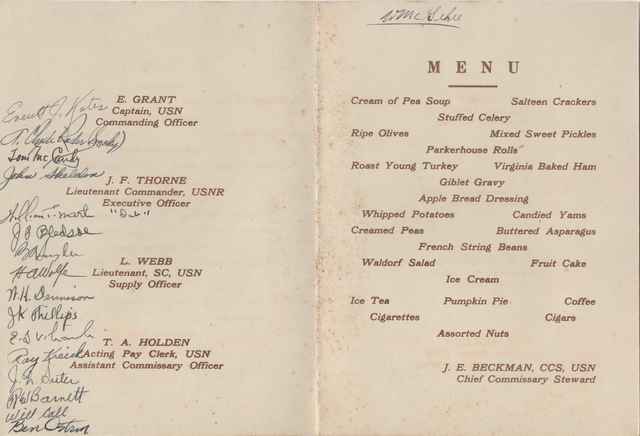 E. GRANT
Captain, USN
Commanding Officer
J. F. THORNE
Lieutenant Commander, USNR
Executive Officer
L. WEBB
Lieutenant, SC, USN
Supply Officer
T. A. HOLDEN
Acting Pay Clerk, USN
Assistant Commissary Officer
Tom McCandy
John Sheldon
J G Bledsoe
H A Wolfe
N. H. Dennison
J K Phillips
J. L. Suter
Barnett
Will Call
Ben
MENU
Cream of Pea Soup Salteen Crackers
Stuffed Celery
Ripe Olives Mixed Sweet Pickles
Parkerhouse Rolls
Roast Young Turkey Virginia Baked Ham
Giblet Gravy
Apple Bread Dressing
Whipped Potatoes Candied Yams
Creamed Peas Buttered Asparagus
French String Beans
Waldorf Salad Fruit Cake
Ice Cream
Ice Tea Pumpkin Pie Coffee
Cigarettes Cigars
Assorted Nuts
J. E. BECKMAN, CCS, USN
Chief Commissary Steward